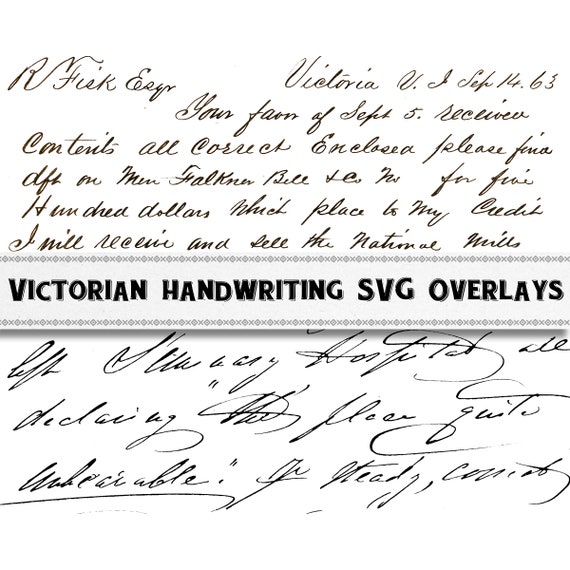 R Fisk Esqr Victoria V. I Sep 14. 63
Your favor of Sept 5. received
Contents all correct Enclosed please find
dft on Mess Falkner Bell & Co No for five
Hundred dollars Which place to My Credit
I will receive and sell the National Mills
VICTORIAN HANDWRITING SVG OVERLAYS
left Seminary Hospital, all
declaring "the place quite
unbearable". In steady, consist